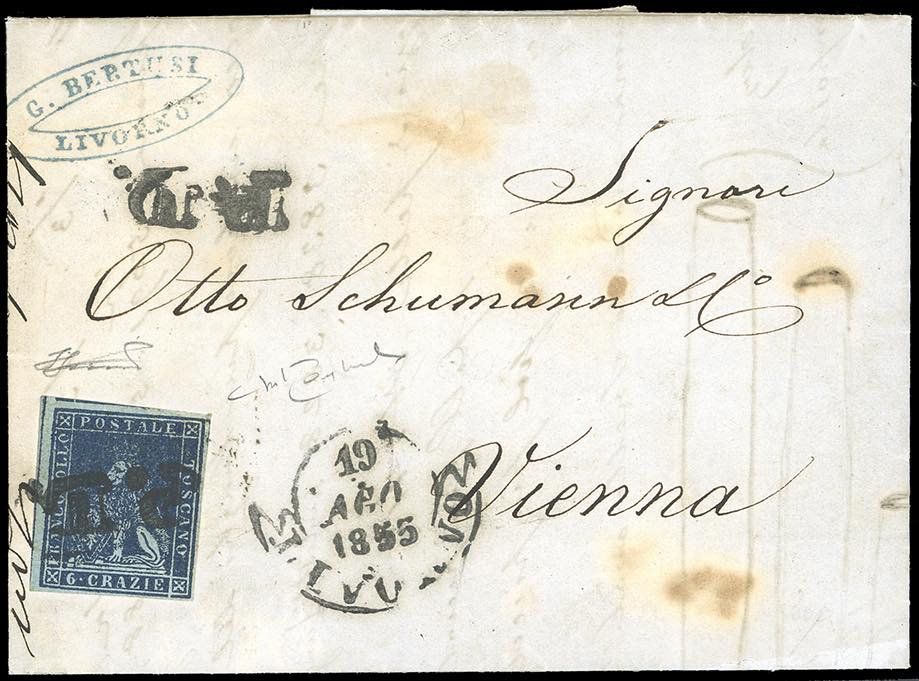 G. BERTUSI
LIVORNO
P. D.
Signori
Otto Schumann & Co
Vienna
19
AGO
1855
LIVORNO
FRANCOBOLLO
POSTALE
TOSCANO
6·CRAZIE
P. D.